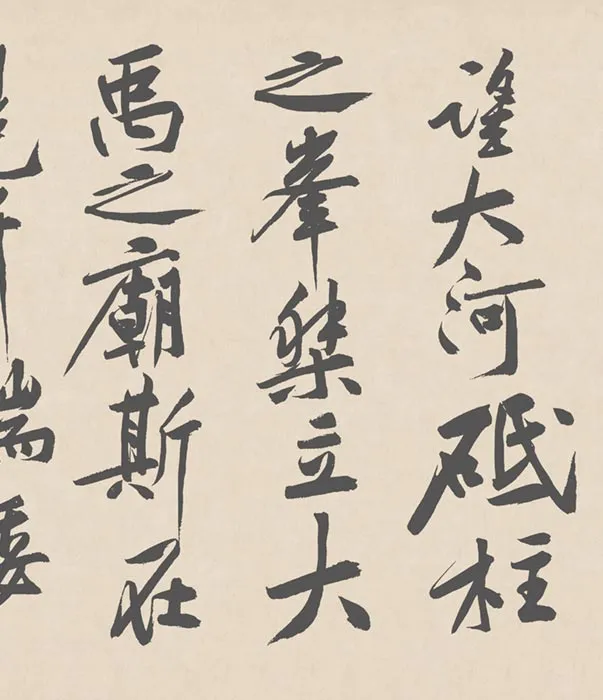 望大河砥柱
之峯桀立大
禹之廟斯在
端委